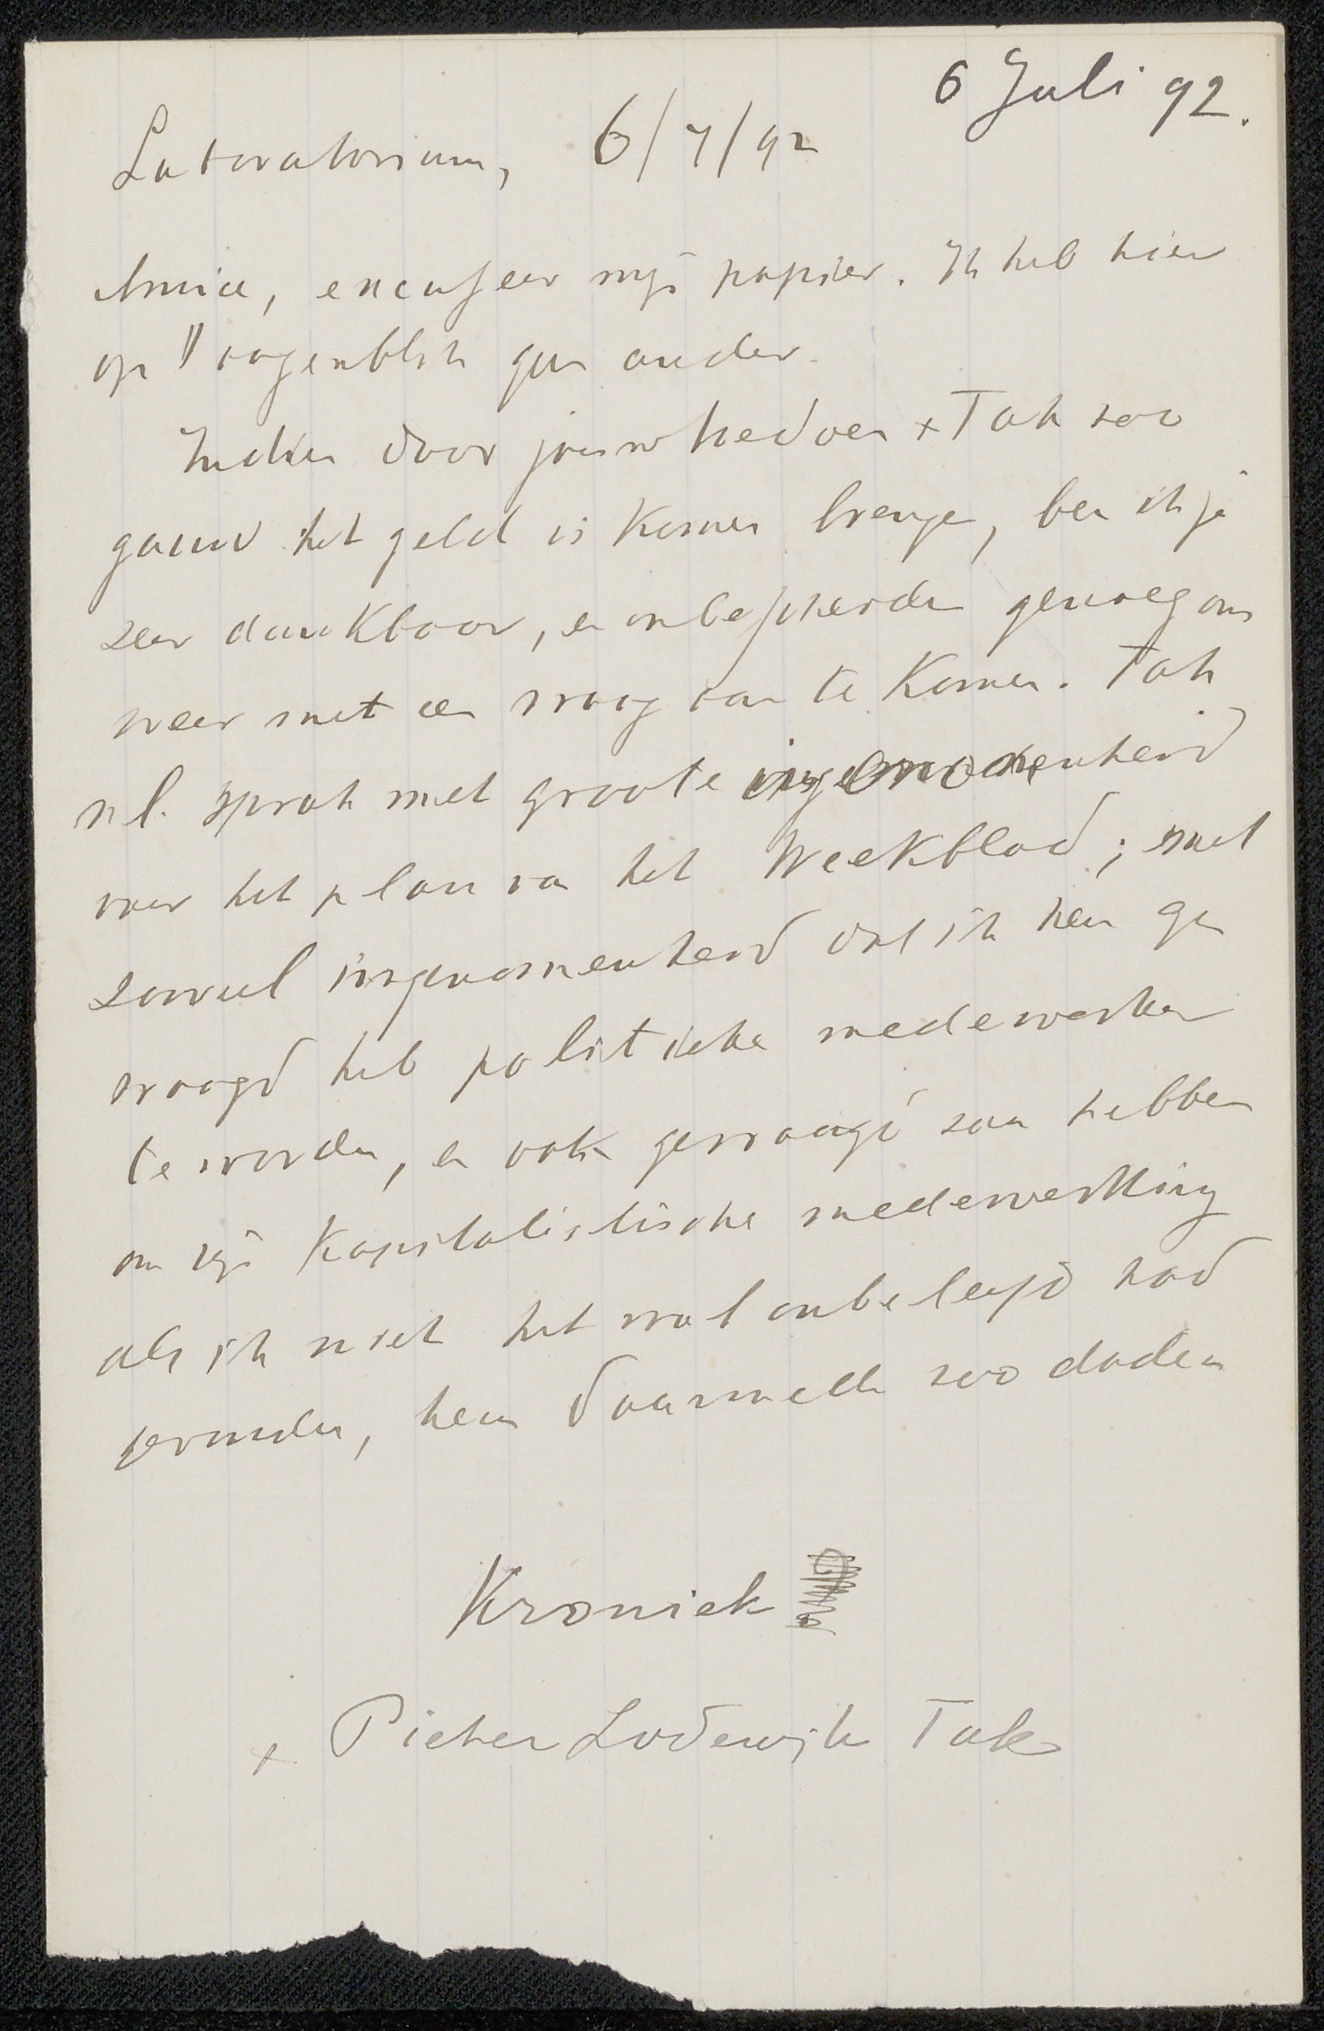 6 Juli 92.
Laboratorium, 6/7/92
Amice, excuseer mijn papier. Ik heb hier
op 't oogenblik geen ander.
Indien door jouw toedoen + Tak zoo
gauw het geld is komen brengen, ben ik je
zeer dankbaar, en onbescheiden genoeg om
weer met een vraag aan te komen. Tak
nl. sprak met groote ingenomenheid
over het plan van het Weekblad; met
zooveel ingenomenheid dat ik hem ge
vraagd heb politieke medewerker
te worden, en ook gevraagd zou hebben
om zijn kapitalistische medewerking
als ik niet het wat onbeleefd had
gevonden, hem daarmede zoo dadelijk
Kroniek
+ Pieter Lodewijk Tak